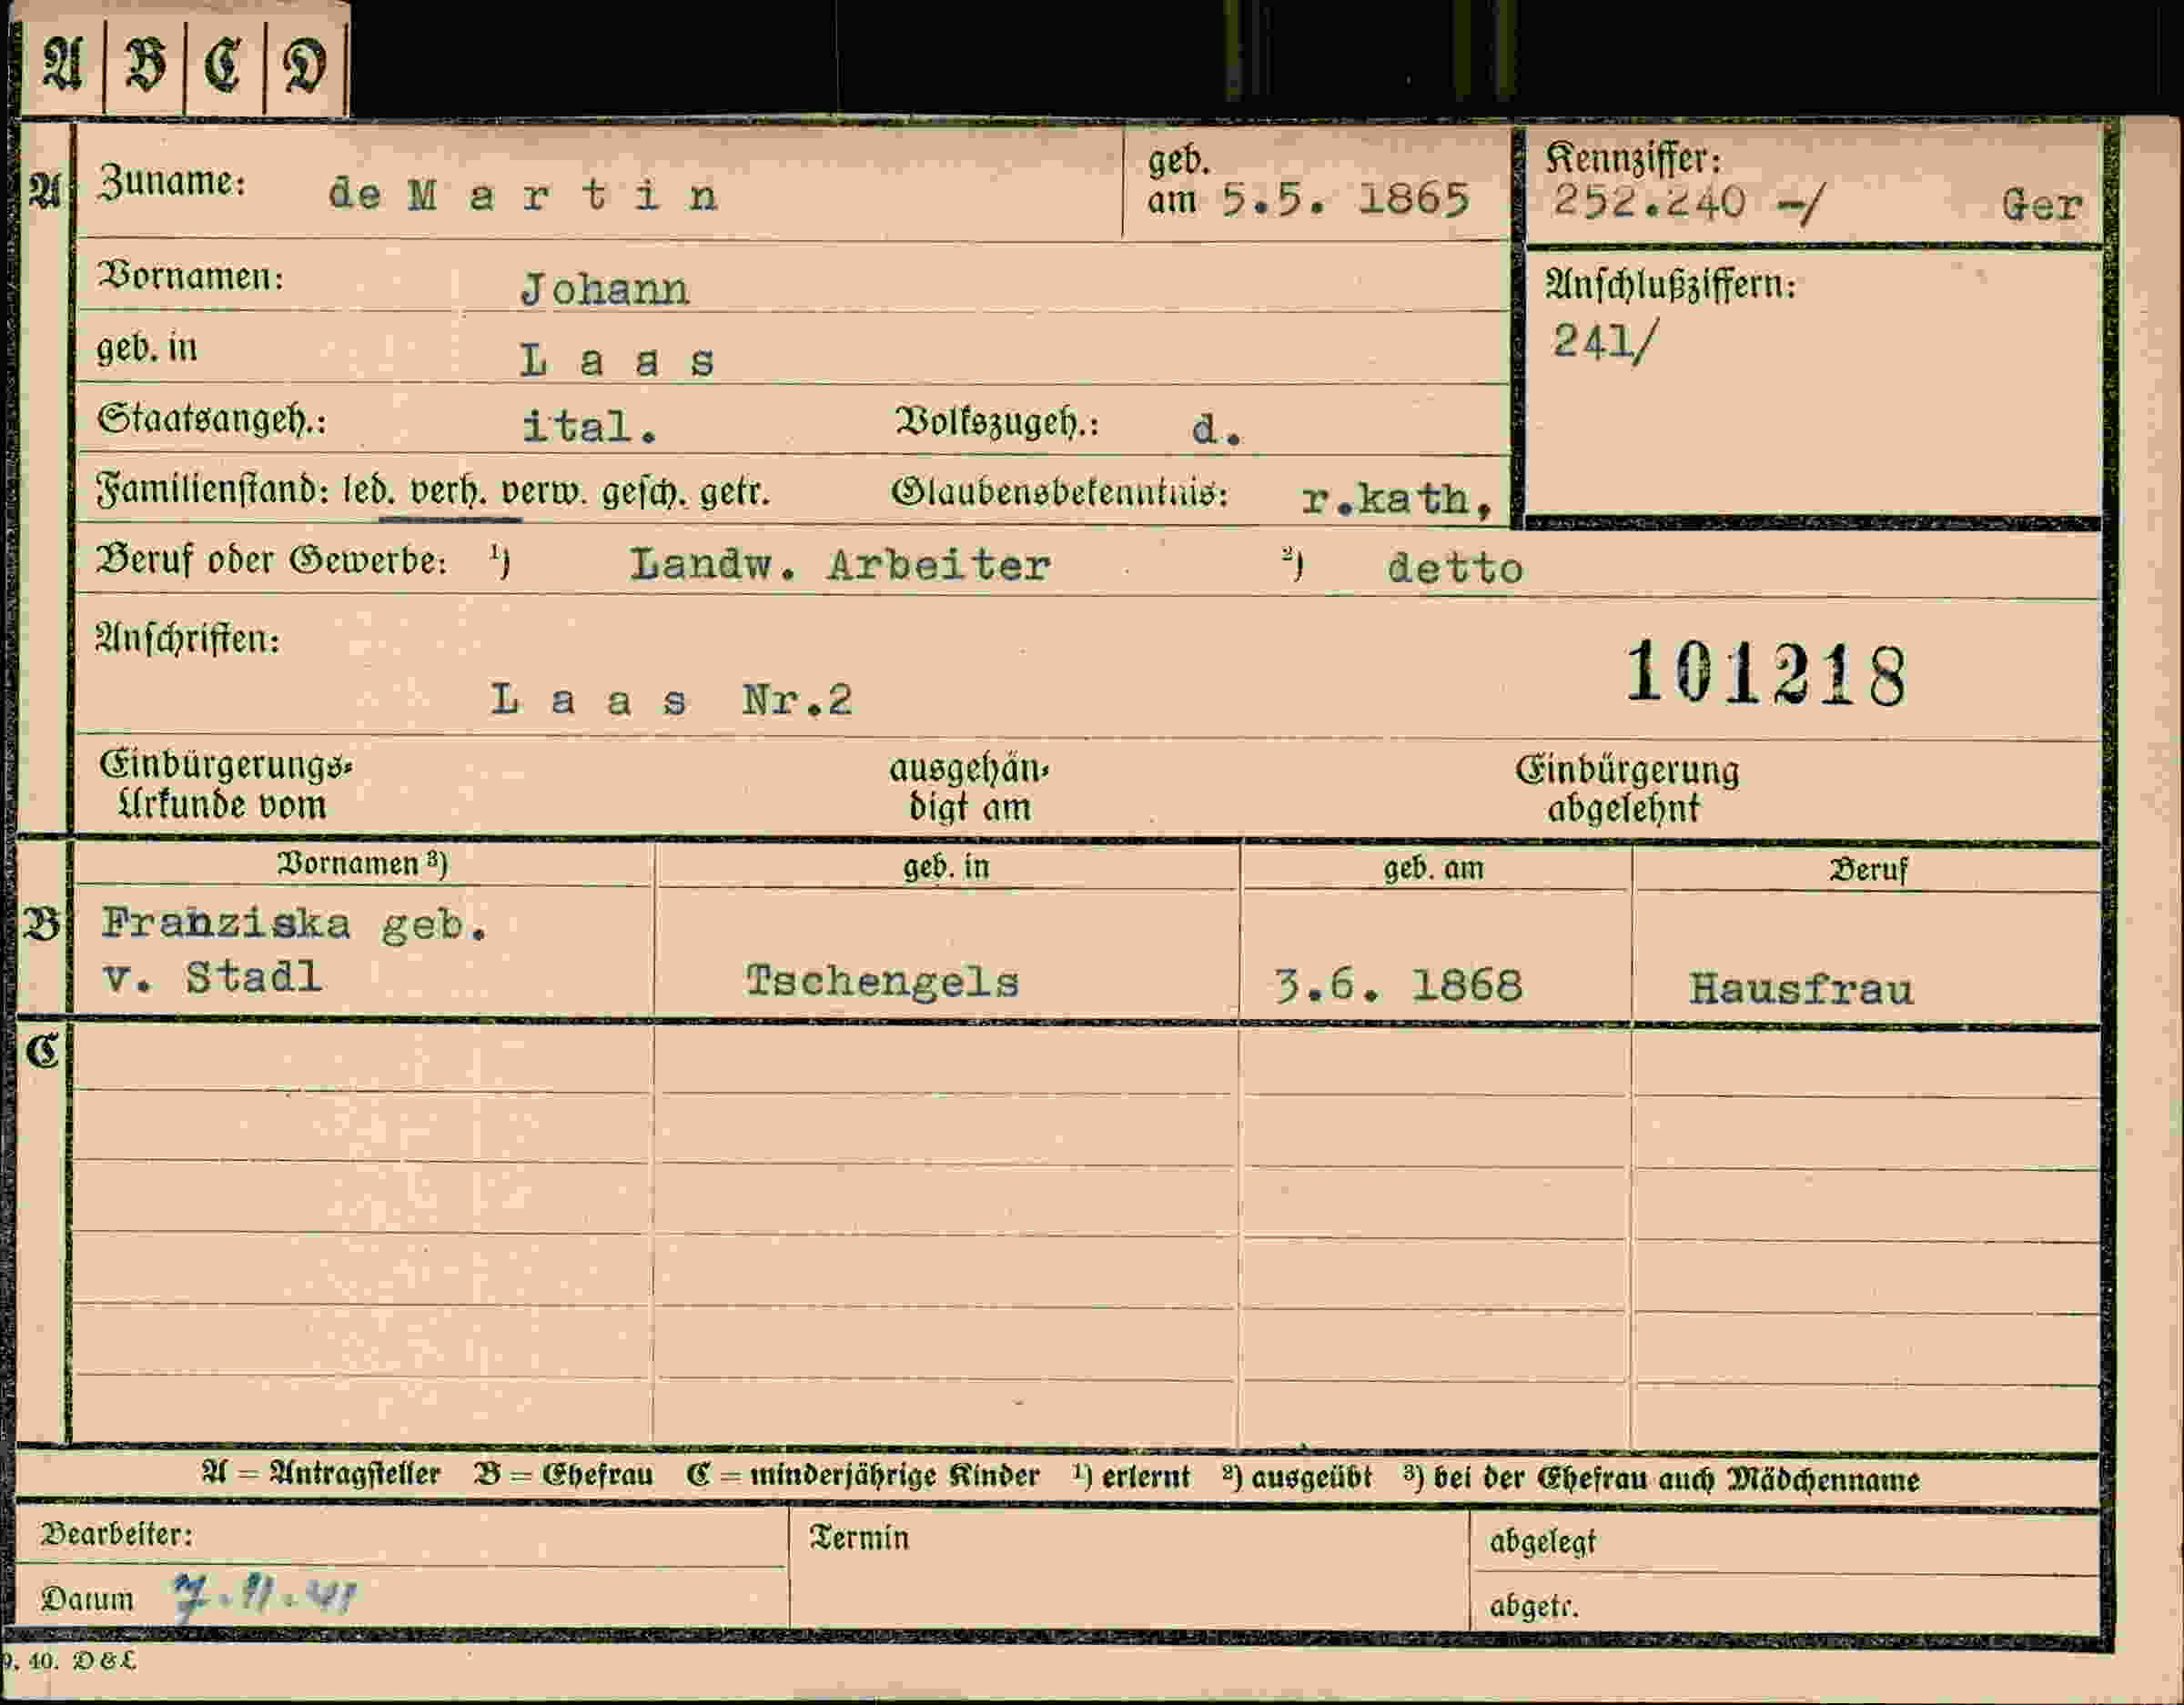 A B C D
A Zuname: de M a r t i n geb. am 5.5. 1865 Kennziffer: 252.240 -/ Ger
Vornamen: Johann Anschlußziffern:
geb. in L a a s 241/
Staatsangeh.: ital. Volkszugeh.: d.
Familienstand: led. verh. verw. gesch. getr. Glaubensbekenntnis: r.kath,
Beruf oder Gewerbe: ¹) Landw. Arbeiter ²) detto
Anschriften:
L a a s Nr.2 101218
Einbürgerungs- ausgehän- Einbürgerung
Urkunde vom digt am abgelehnt
Vornamen ³) geb. in geb. am Beruf
B Franziska geb.
v. Stadl Tschengels 3.6. 1868 Hausfrau
C
A = Antragsteller B = Ehefrau C = minderjährige Kinder ¹) erlernt ²) ausgeübt ³) bei der Ehefrau auch Mädchenname
Bearbeiter: Termin abgelegt
Datum 7.11.41 abgetr.
9. 40. D & L